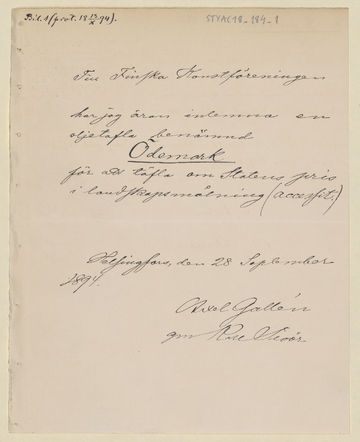 Bil. 1 (prot. 18 13/X 94).
STYAC18-184-1
Till Finska Konstföreningen
har jag äran inlemna en
oljetafla benämnd
Ödemark
för att täfla om Statens pris
i landskapsmålning (accessit.)
Helsingfors, den 28 September
1894.
Axel Gallén
gm